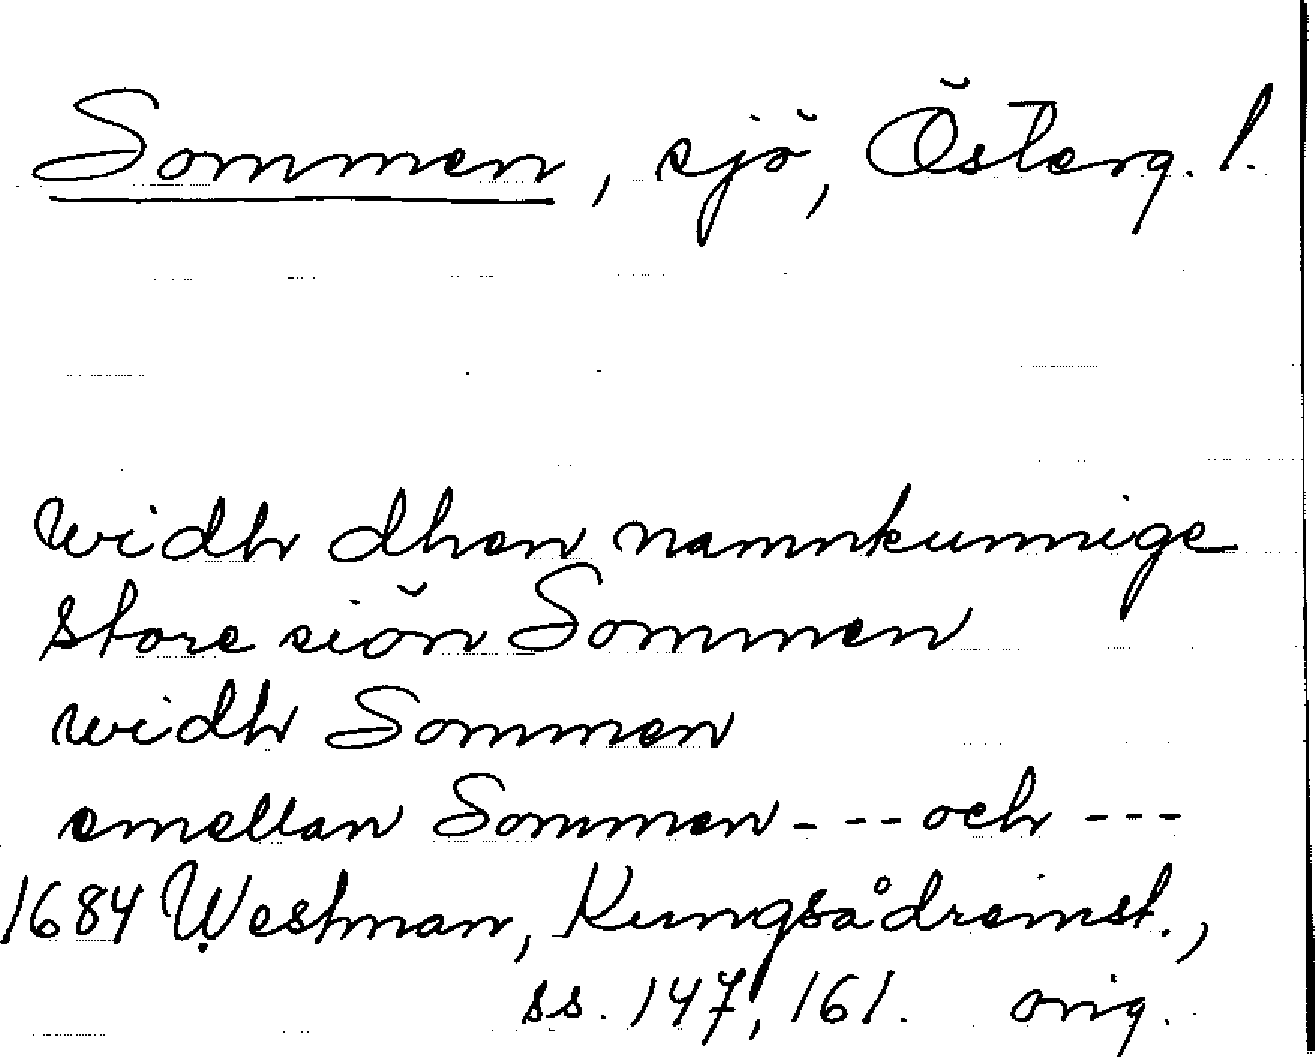 Sommen, sjö, Österg. l.
widh dhen namnkunnige
store siön Sommen
widh Sommen
emellan Sommen - - - och - - -
1684 Westman, Kungsådreinst.,
ss. 147, 161. orig.